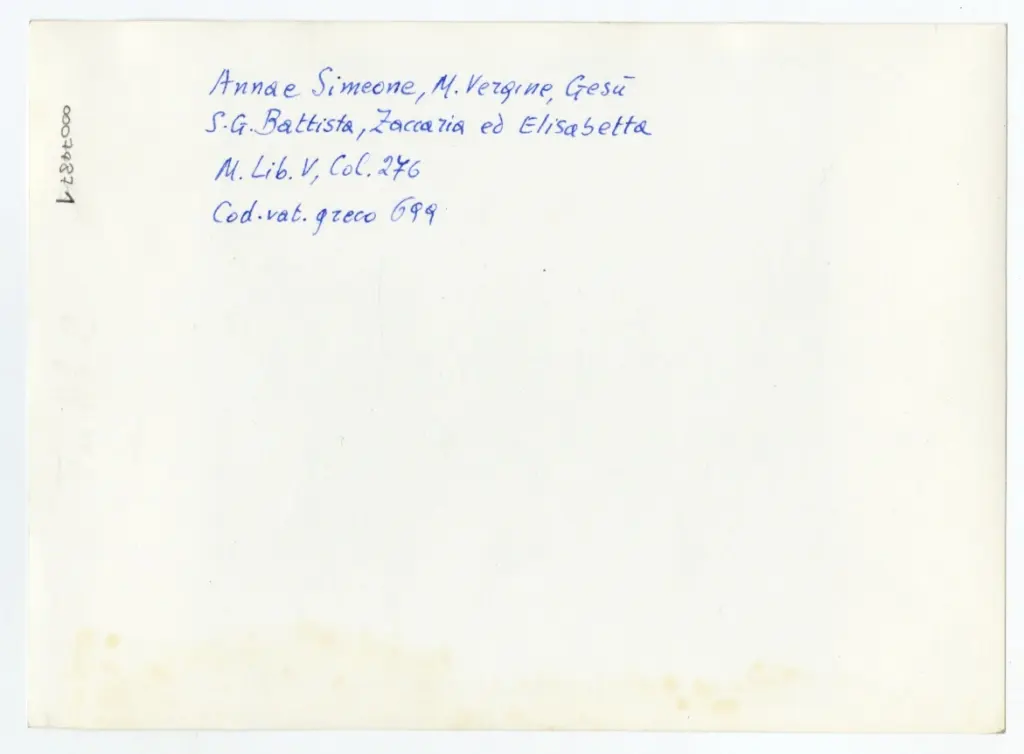 Anna e Simeone, M. Vergine, Gesù
S.G. Battista, Zaccaria ed Elisabetta
M. Lib. V, Col. 276
Cod. vat. greco 699